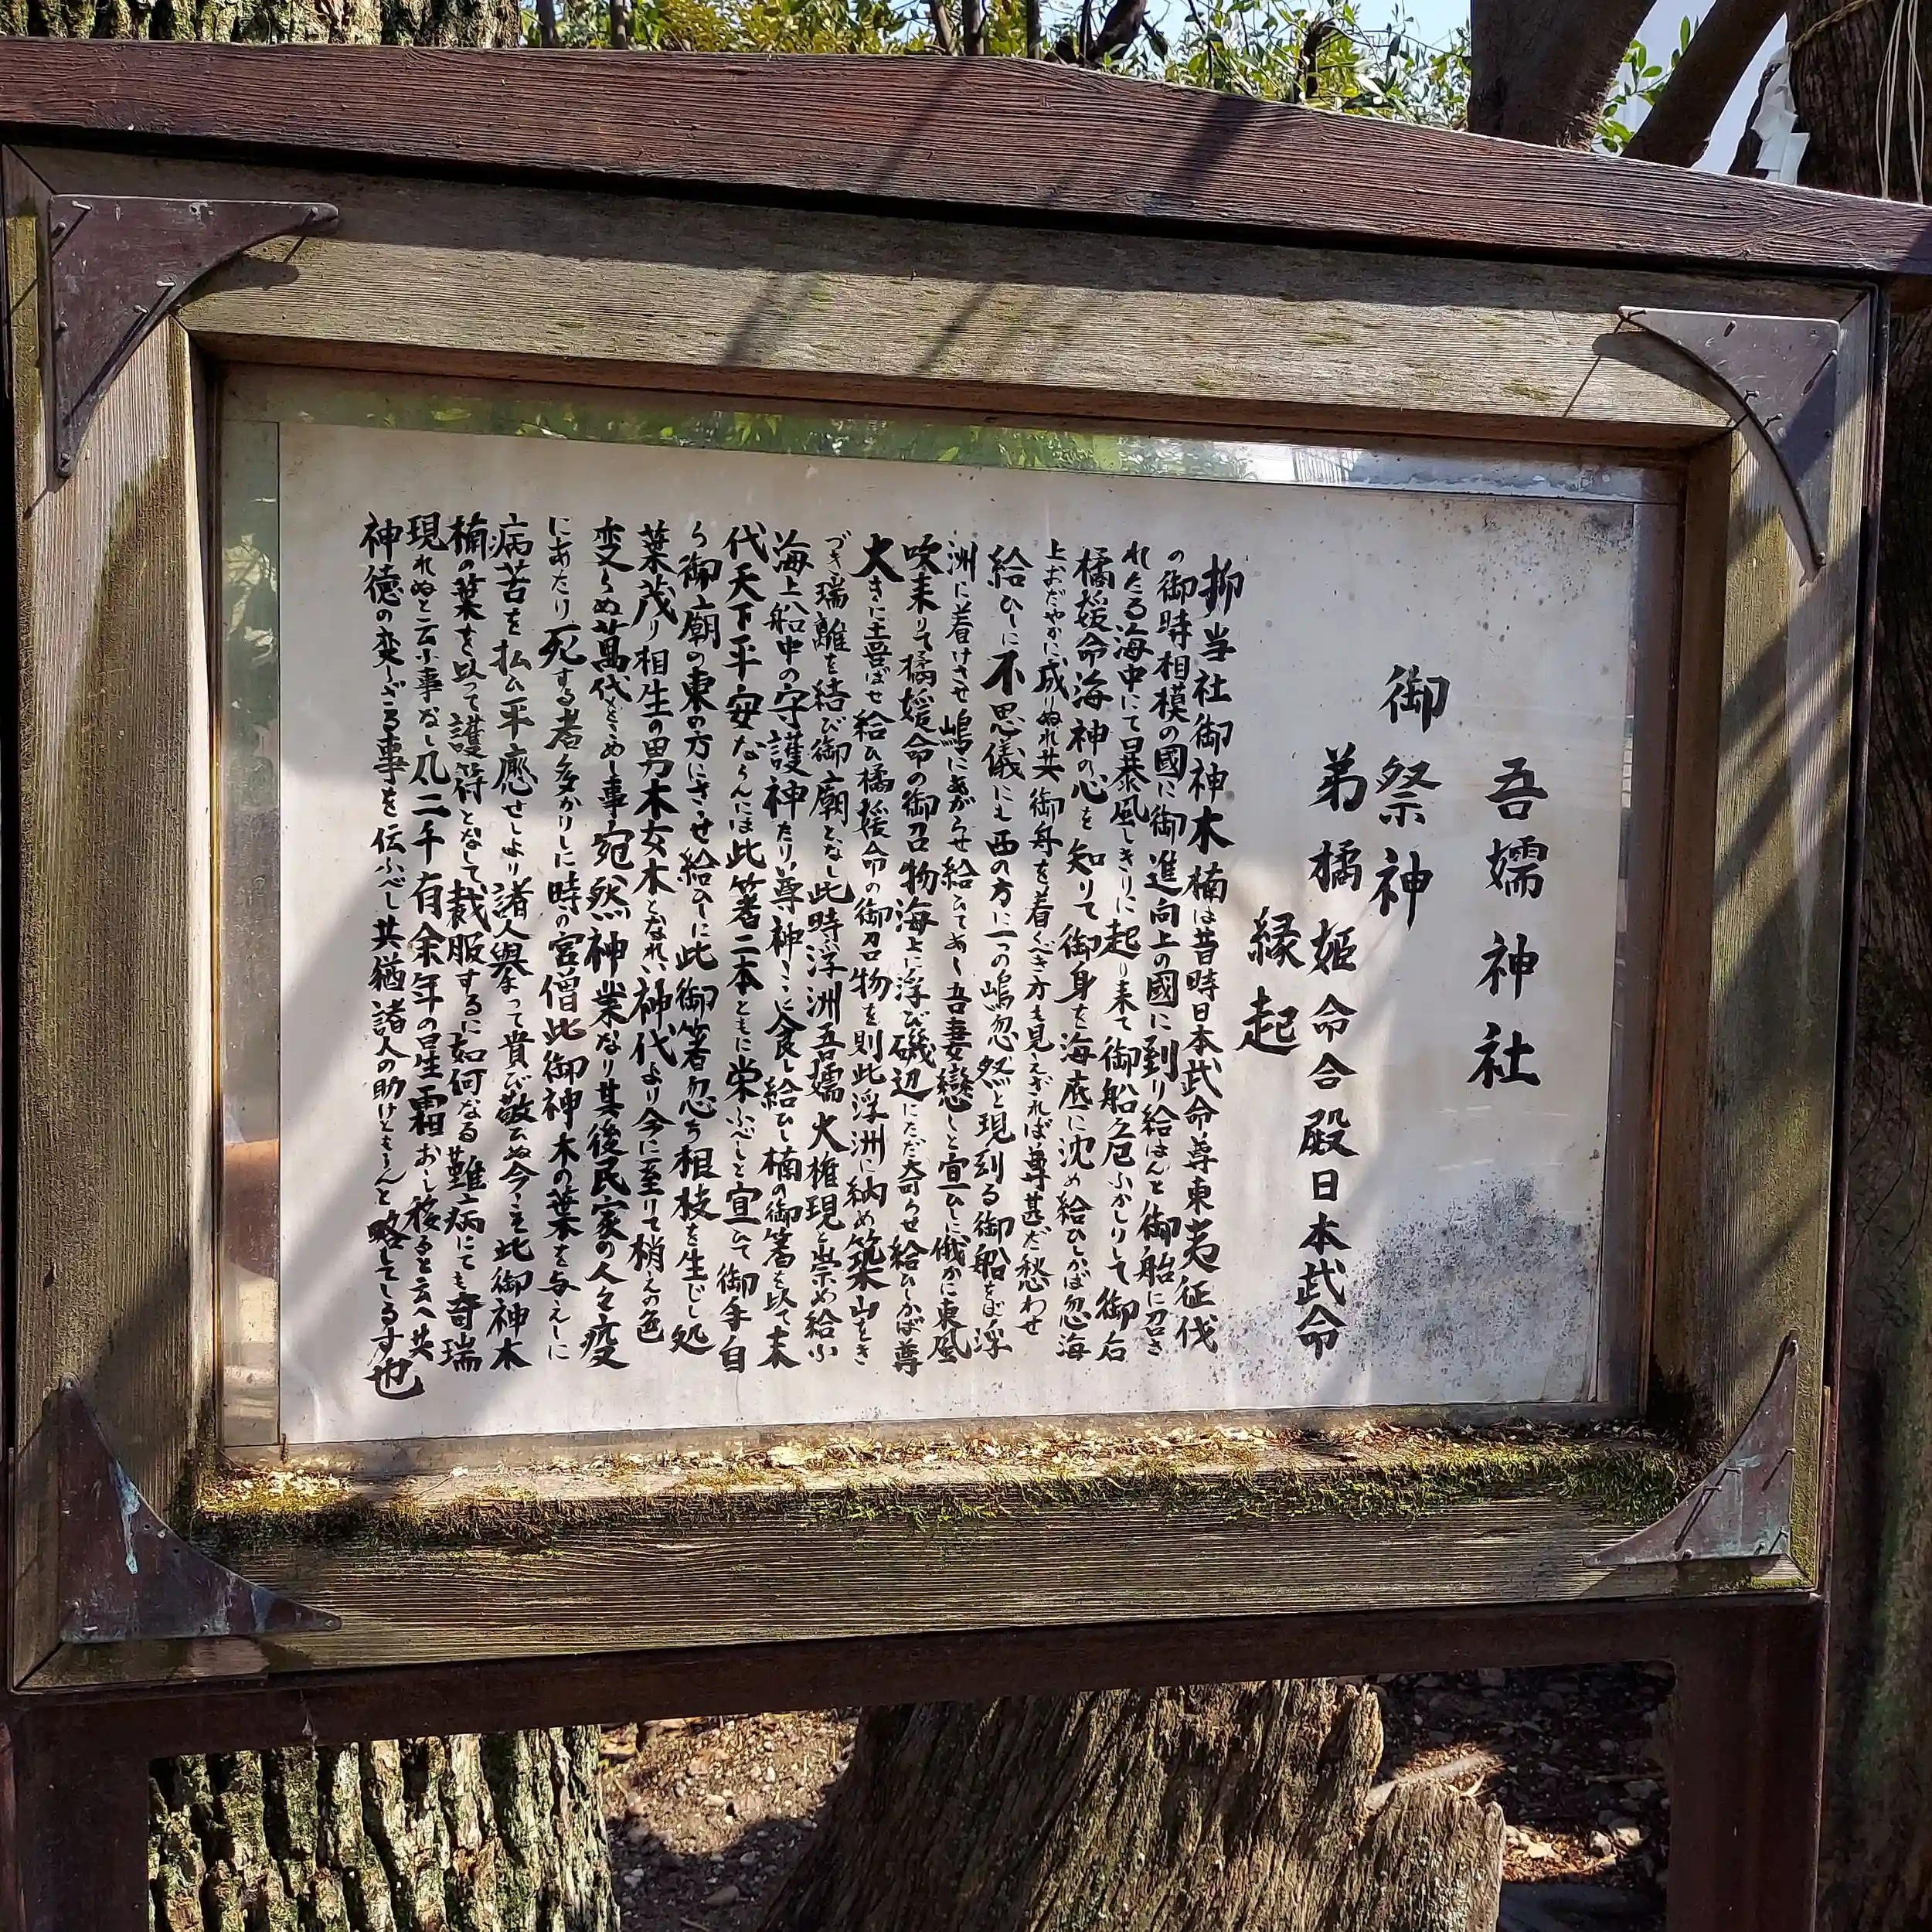 吾嬬神社
御祭神
弟橘姫命合殿日本武命
縁起
抑当社御神木楠は昔時日本武命尊東夷征伐
の御時相模の國に御進向上の國に到り給はんと御船に召さ
れたる海中にて暴風しきりに起り来て御船危ふかりしに御后
橘媛命海神の心を知りて御身を海底に沈め給ひしかば忽海
上おだやかに成りぬれ共御舟を着くべき方も見えざれば尊甚だ愁わせ
給ひしに不思儀にも西の方に一つの嶋忽然と現到る御船をば浮
洲に着けさせ嶋にあがらせ給ひてあゝ吾妻戀しと宣ひしに俄かに東風
吹来りて橘媛命の御召物海上に浮び磯辺にただよらせ給ひしかば尊
大きに喜ばせ給ひ橘媛命の御召物を則此浮洲に納め築山をき
づき瑞離を結び御廟となし此時浮洲吾嬬大権現と崇め給ふ
海上船中の守護神たり尊神こゝに食し給ひし楠の御箸を以て末
代天下平安ならんには此箸二本ともに栄ふべしと宣ひて御手自
ら御廟の東の方にさゝせ給ひしに此御箸忽ち根枝を生じし処
葉茂り相生の男木女木となれり神代より今に至りて梢えの色
変らぬ萬代をこめし事宛然神業なり其後民家の人々疫
にあたり死する者多かりしに時の宮僧此御神木の葉を与えしに
病苦を払ひ平癒せしより諸人挙って貴び敬ひぬ今こゝに此御神木
楠の葉を以って護符となして裁服するに如何なる難病にても奇瑞
現れぬと云ふ事なし凡二千有余年の星霜おし移ると云へ共
神徳の変らざる事を伝ふべし共猶諸人の助けともならんと略してしるす也